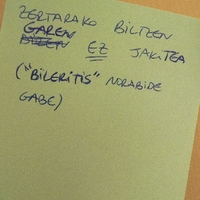 ZERTARAKO BILTZEN
GAREN EZ JAKITEA
("BILERITIS" NORABIDE
GABE)